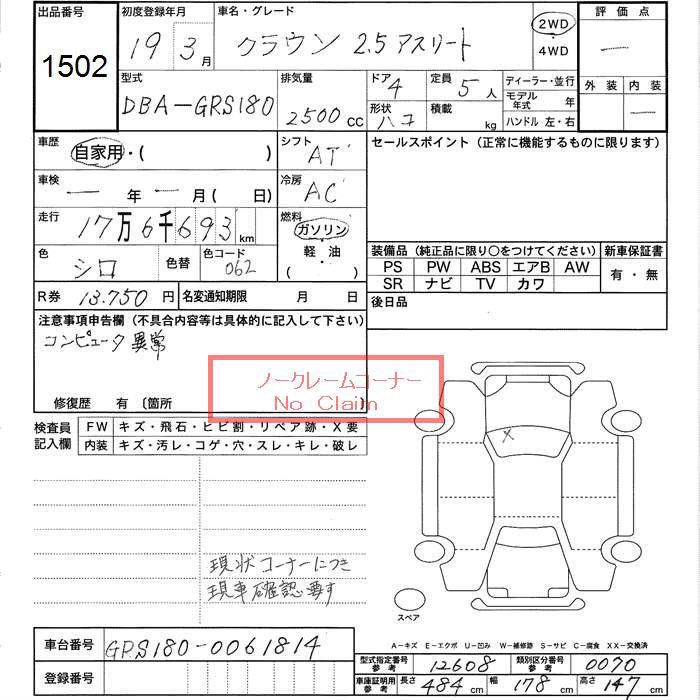 出品番号
1502
初度登録年月
19 3月
車名・グレード
クラウン 2.5 アスリート
2WD
・
4WD
評価点
—
外装 内装
—
型式
DBA-GRS180
排気量
2500 cc
ドア 4
形状 ハコ
定員 5 人
積載 kg
ディーラー・並行
モデル年式 年
ハンドル 左・右
車歴
自家用・( )
シフト
AT
セールスポイント (正常に機能するものに限ります)
車検
— 年 — 月 ( 日)
冷房
AC
走行
17万6千693 km
燃料
ガソリン
軽・油
( ・ )
色
シロ
色替
色コード
062
装備品 (純正品に限り○をつけてください)
PS PW ABS エアB AW
SR ナビ TV カワ
新車保証書
有・無
R券 13.750 円
名変通知期限 月 日
後日品
注意事項申告欄 (不具合内容等は具体的に記入して下さい)
コンピュータ異常
ノークレームコーナー
No Claim
修復歴 有 〔箇所 〕
検査員
記入欄
FW キズ・飛石・ヒビ割・リペア跡・X要
内装 キズ・汚レ・コゲ・穴・スレ・キレ・破レ
X
現状コーナーにつき
現車確認要す
スペア
A-キズ E-エクボ U-凹み W-補修跡 S-サビ C-腐食 XX-交換済
車台番号 GRS180-0061814
登録番号
型式指定番号
参考
12608
類別区分番号
参考
0070
車庫証明用
参考
長さ 484 cm 幅 178 cm 高さ 147 cm